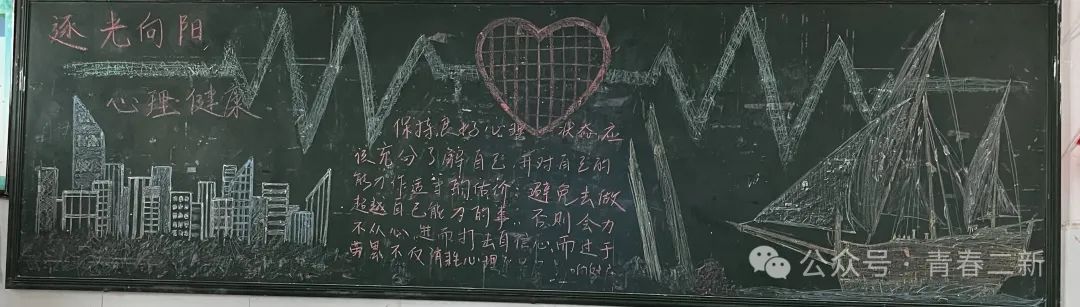 逐光向阳
心理健康
保持良好心理 状态应
该充分了解自己,并对自己的
能力作适当的估价;避免去做
超越自己能力的事;否则会力
不从心,进而打击自信心,而过于
劳累不仅 心理
公众号·青春二新